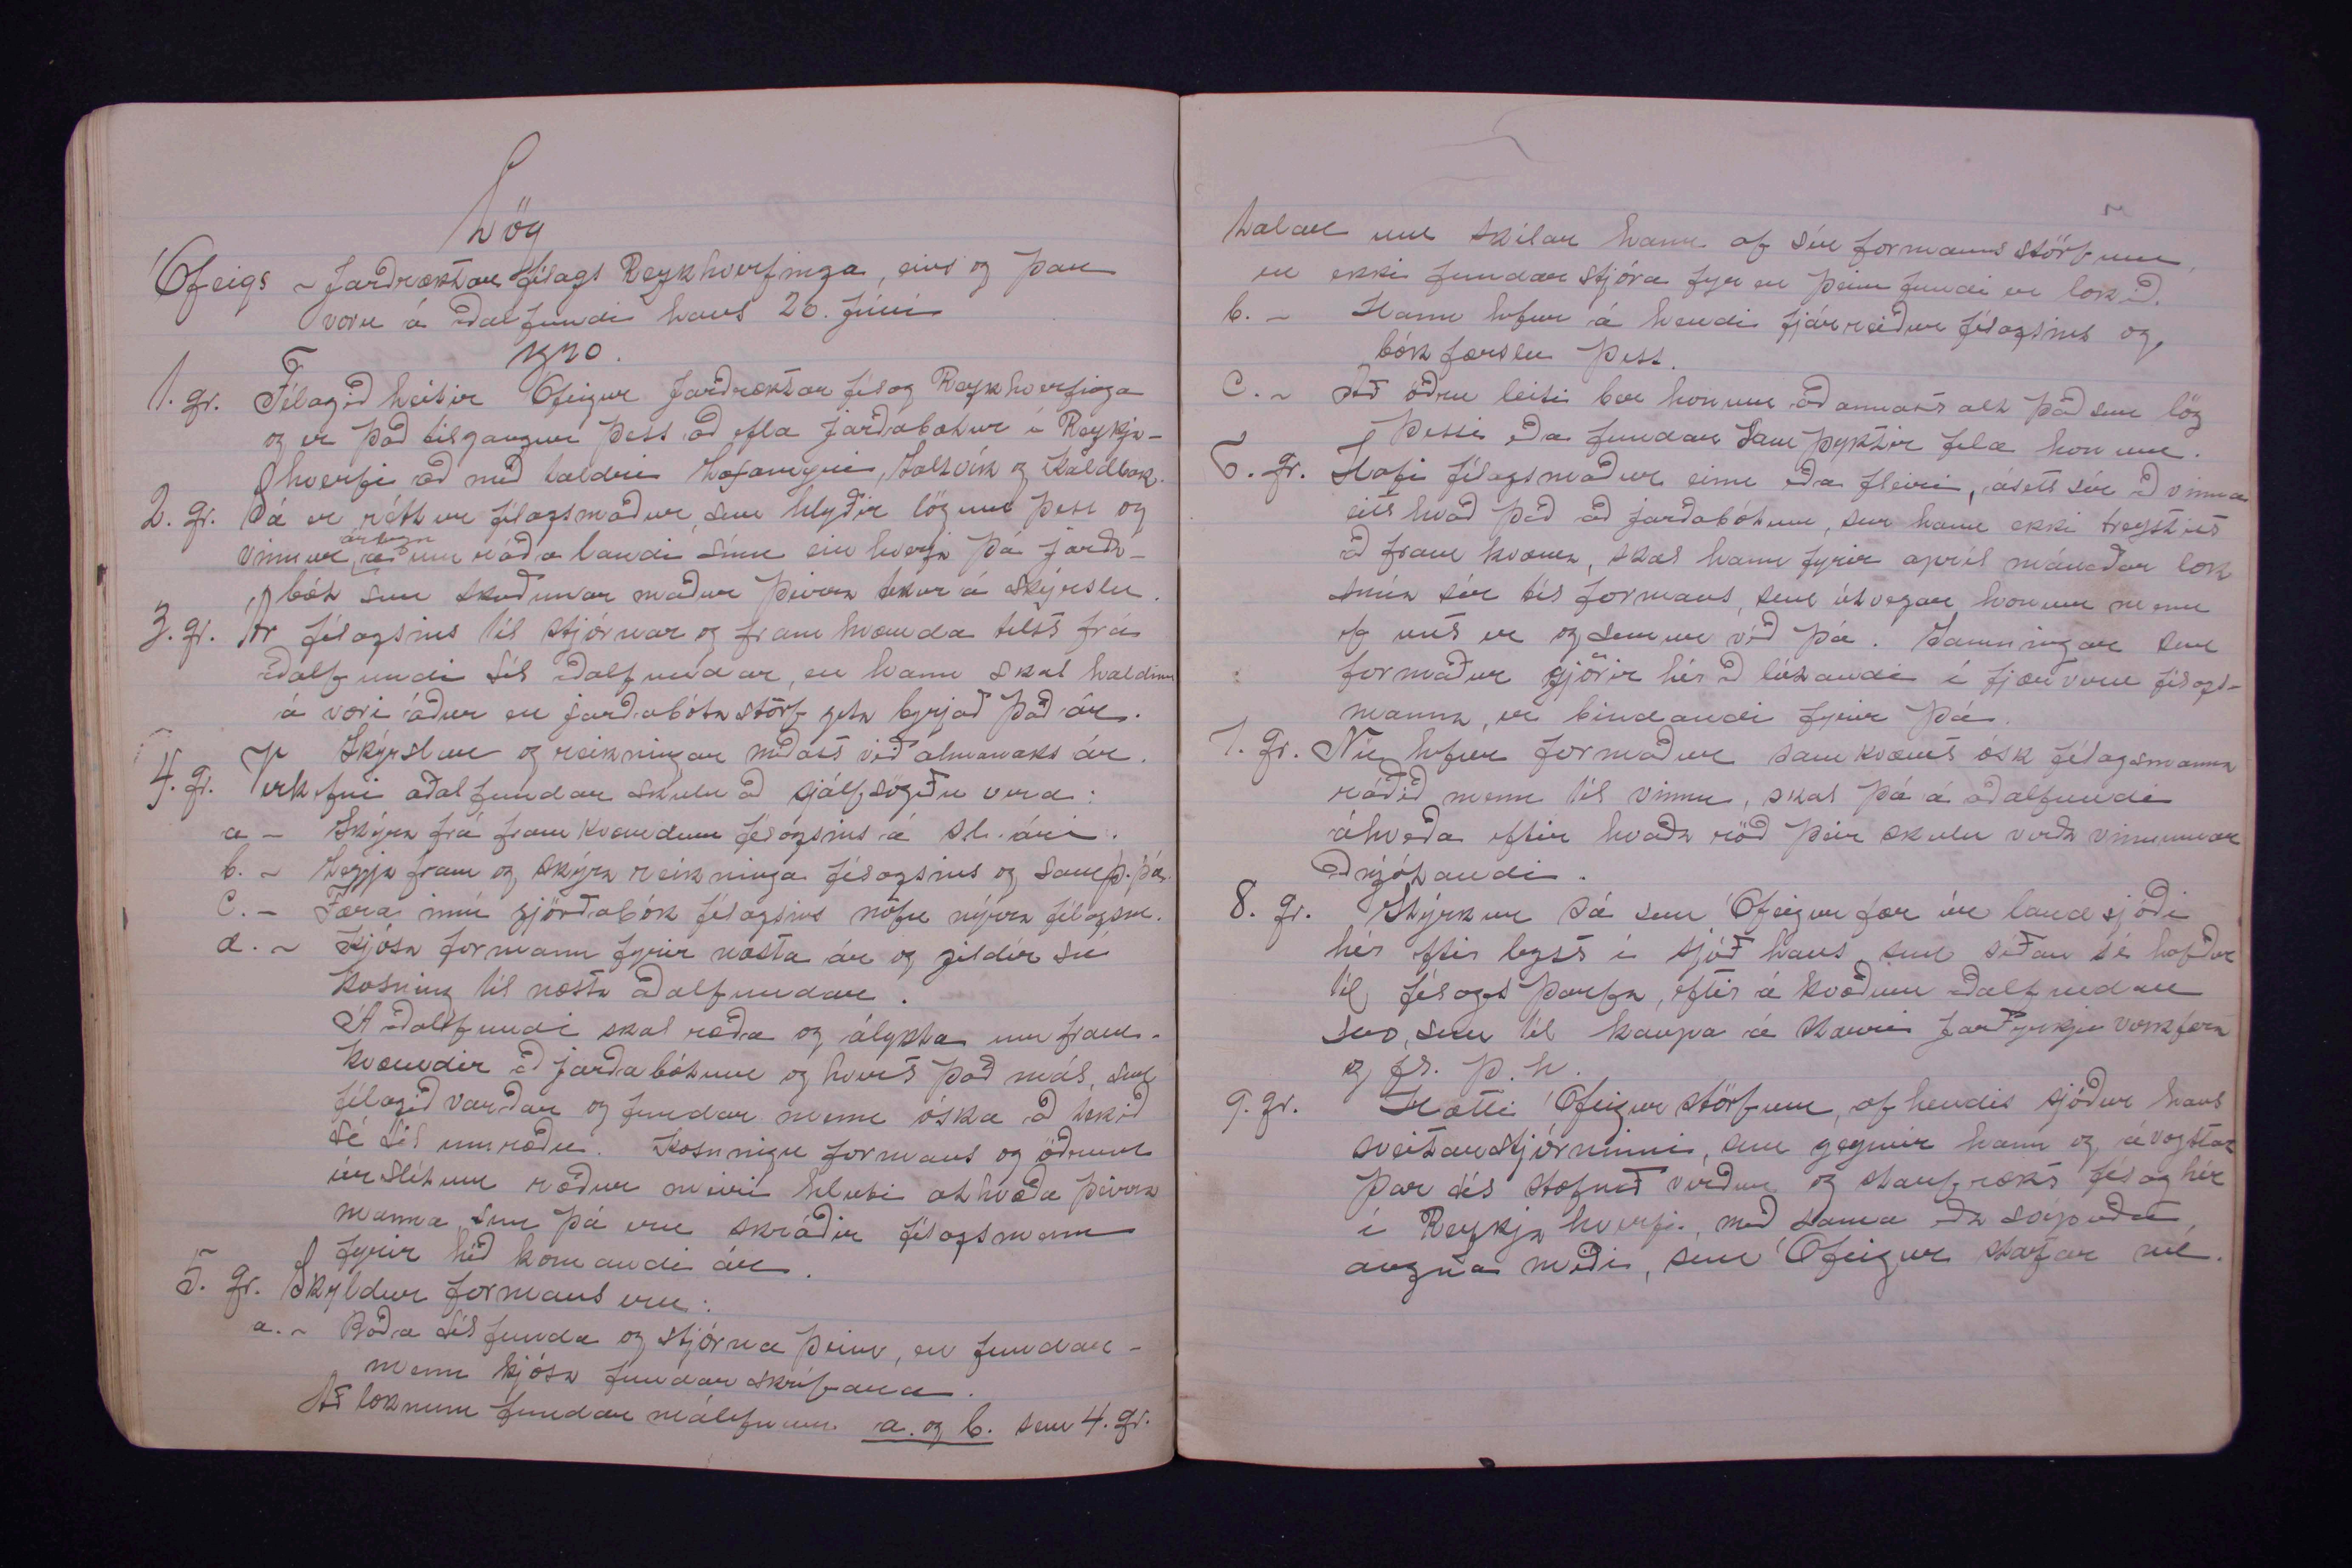 Lög
Ófeigs ~ Jarðræktar félags Reykhverfinga, eins og þau
voru á aðalfundi hans 20. júní
1920.
1. gr. Félagið heitir Ófeigur Jarðræktar félag Reykhverfinga
og er það tilgangur þess að efla jarðabætur í Reykja-
hverfi að með taldri Laxamýri, Saltvík og Kaldbak.
2. gr. Sá er réttur félagsmaður, sem hlýðir lögum þess og
árlega
vinnur, á um ráða landi sínu ein hverja þá jarða-
bót sem skoðunar maður þeirra tekur á skýrslu.
3. gr. Ár félagsins til stjórnar og fram kvæmda telst frá
aðalfundi til aðalfundar, en hann skal haldinn
á vori áður en jarðabóta störf geta byrjað það ár.
Skýrslur og reikningar miðast við almanaks ár.
4. gr. Verkefni aðalfundar skulu að sjálfsögðu vera:
a - Skýra frá fram kvæmdum félagsins á sl. ári.
b. ~ Leggja fram og skýra reikninga félagsins og samþ. þá.
c. - Færa inní gjörðabók félagsins nöfn nýrra félagsm.
d. ~ Kjósa formann fyrir næsta ár og gildir sú
kosning til næsta aðalfundar.
Á aðalfundi skal ræða og álykta um fram-
kvæmdir að jarðabótum og hvert það mál, sem
félagið varðar og fundar menn óska að tekið
sé til umræðu. Kosningu formans og öðrum
úrslitum ræður meiri hluti atkvæða þeirra
manna, sem þá eru skráðir félagsmenn
fyrir hið komandi ár.
5. gr. Skyldur formans eru:
a. ~ Boða til funda og stjórna þeim, en fundar-
menn kjósa fundar skrifara.
Að loknum fundar málefnum a. og b. sem 4. gr.
talar um skilar hann af sér formanns störfum,
en ekki fundar stjóra fyr en þeim fundi er lokið.
b. - Hann hefur á hendi fjárreiður félagsins og
bók færslu þess.
c. ~ Að öðru leiti ber honum að annast alt það sem lög
þessi eða fundar sam þyktir fela honum.
6. gr. Hafi félagsmaður einn eða fleiri, ásett sér að vinna
eitt hvað það að jarðabótum, sem hann ekki treystist
að fram kvæma, skal hann fyrir apríl mánaðar lok
snúa sér til formans, sem útvegar honum menn
ef unt er og semur við þá. Samningar sem
formaður gjörir hér að lútandi í fjærveru félags-
manna, er bindandi fyrir þá.
7. gr. Nú hefur formaður samkvæmt ósk félagsmanna
ráðið menn til vinnu, skal þá á aðalfundi
ákveða eftir hvaða röð þeir skulu verða vinnunnar
aðnjótandi.
8. gr. Styrkur sá sem Ófeigur fær úr landsjóði
hér eftir legst í sjóð hans sem síðan sé hafður
til félags þarfa, eftir á kvæðum aðalfundar
svo sem til kaupa á stærri jarðyrkju verkfæra
og fl. þ. h.
9. gr. Hætti Ófeigur störfum, afhendis sjóður hans
sveitarstjórninni, sem geymir hann og ávaxtar
þar til stofnað verður og starfrækt félag hér
í Reykja hverfi, með sama eða svipuðu
augna miði, sem Ófeigur starfar nú.